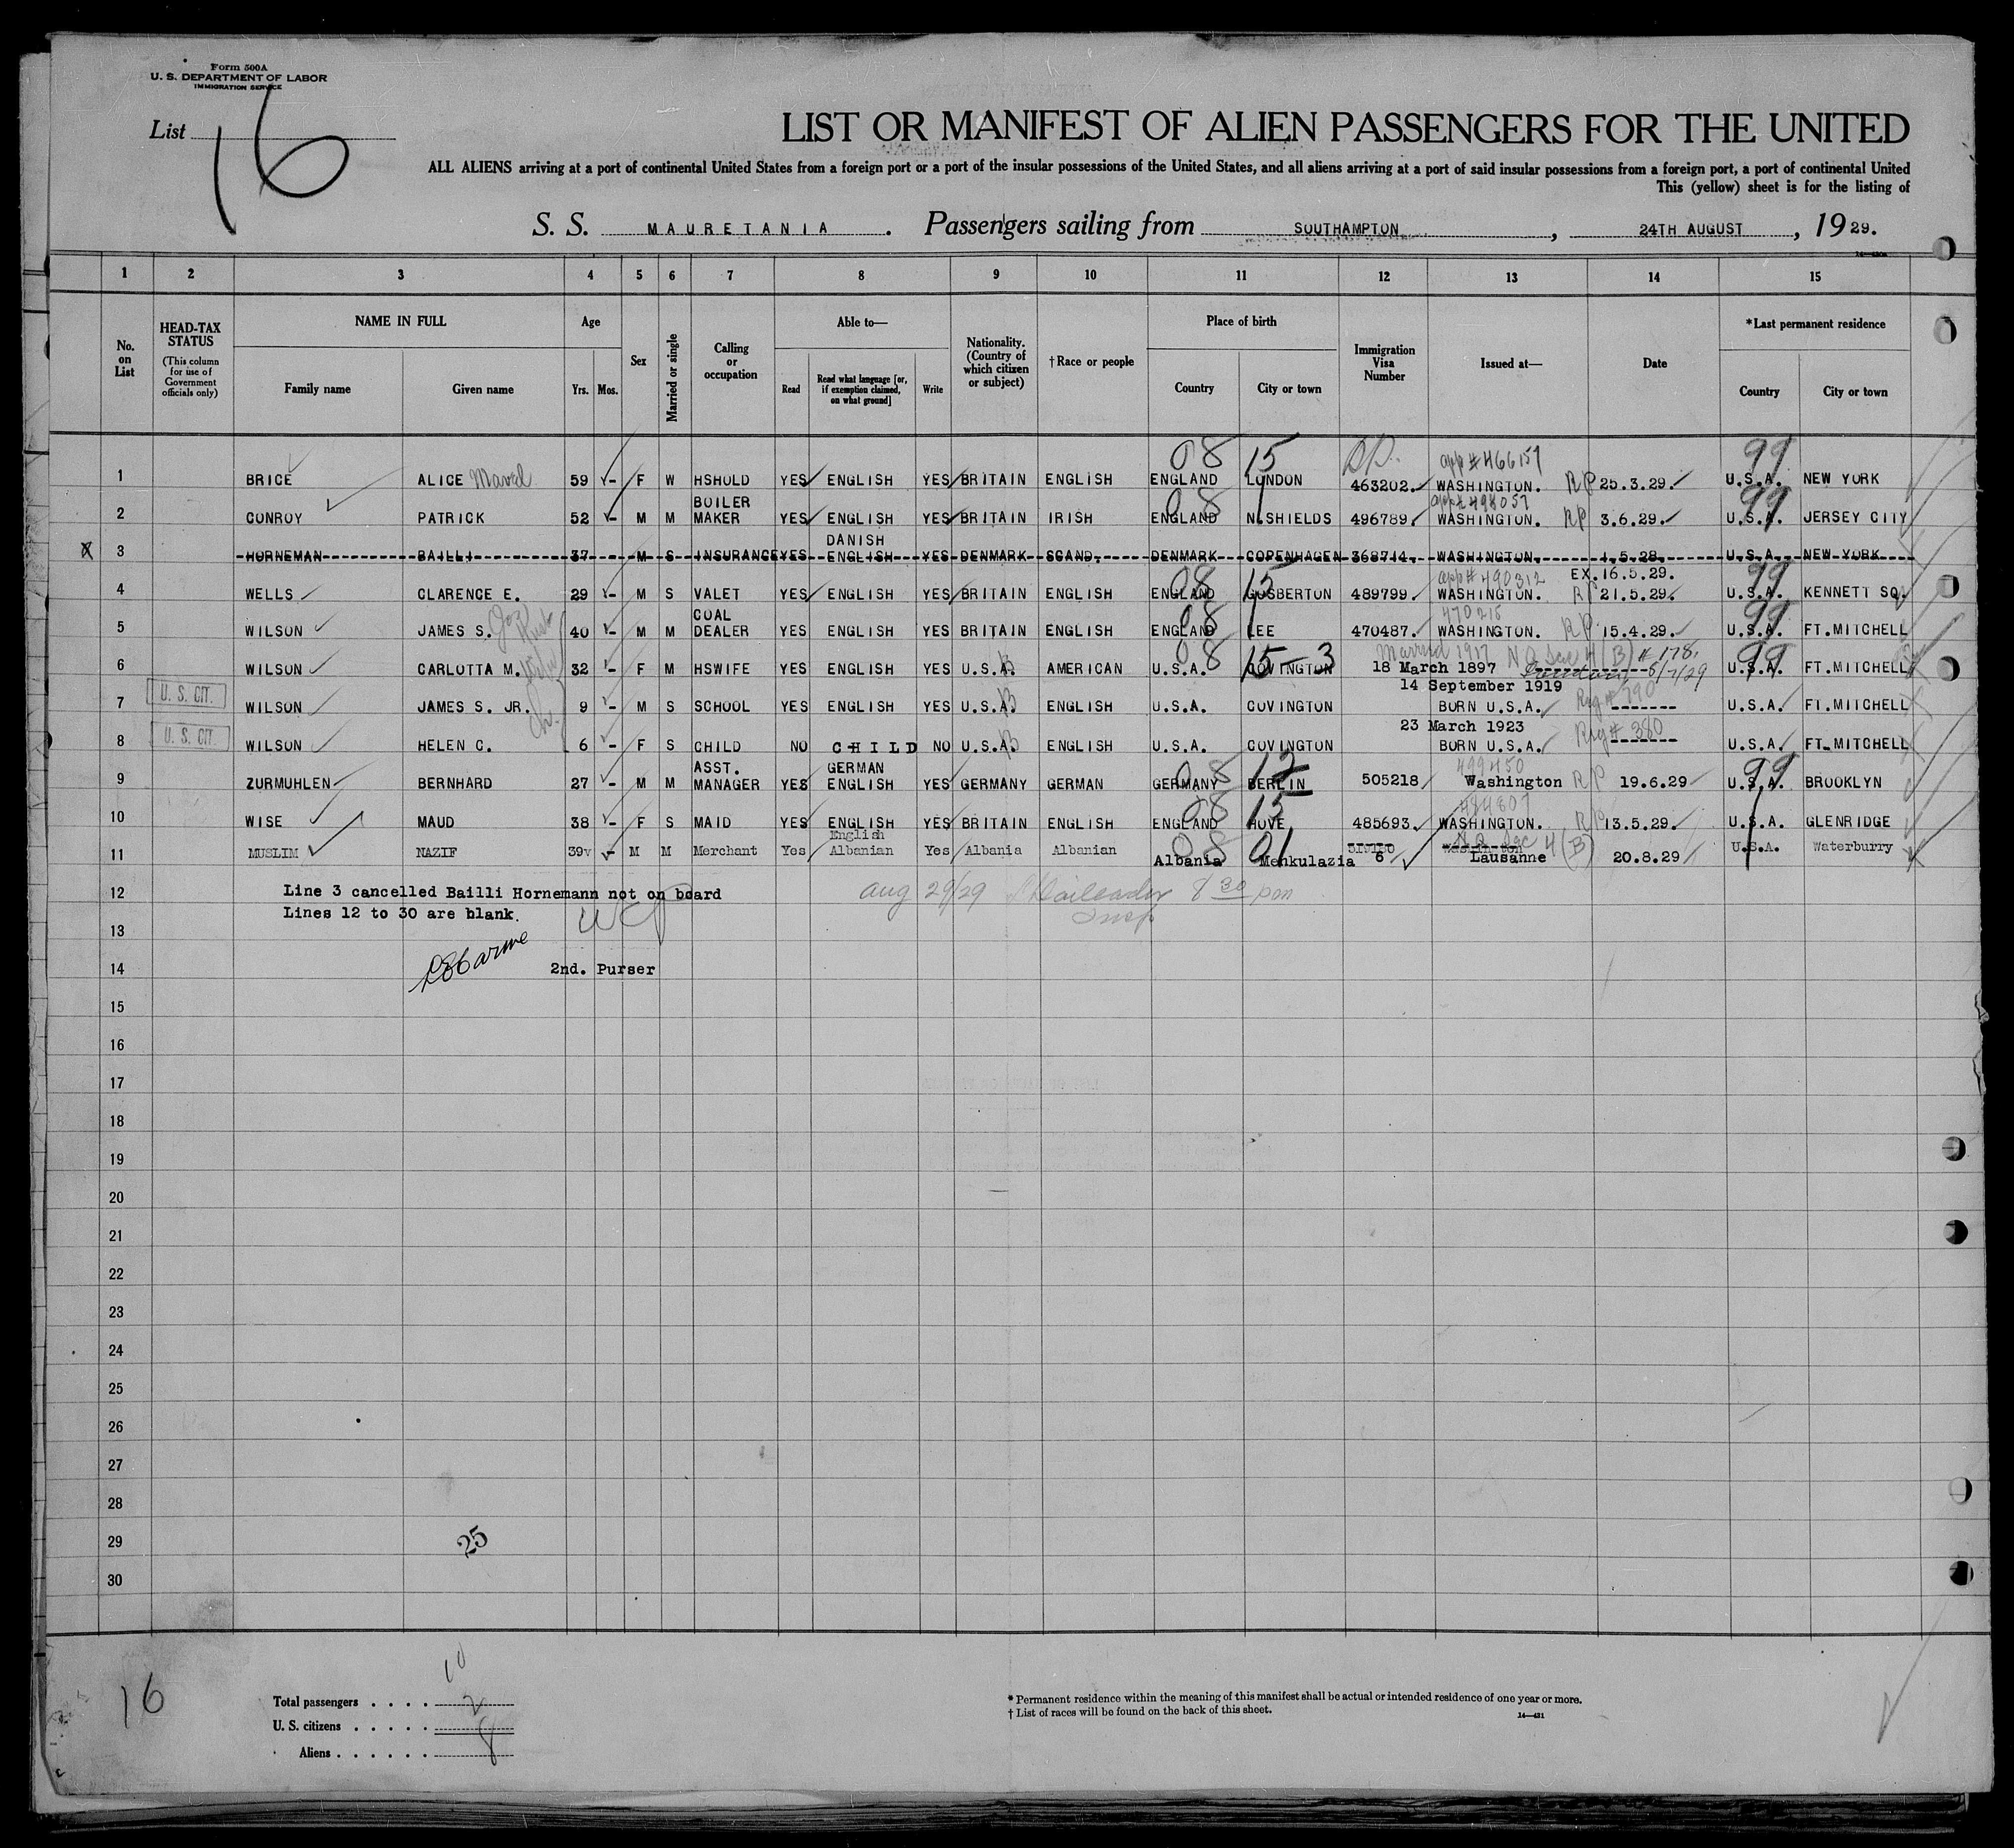 Form 500A
U. S. DEPARTMENT OF LABOR
IMMIGRATION SERVICE
List 16
LIST OR MANIFEST OF ALIEN PASSENGERS FOR THE UNITED
ALL ALIENS arriving at a port of continental United States from a foreign port or a port of the insular possessions of the United States, and all aliens arriving at a port of said insular possessions from a foreign port, a port of continental United
This (yellow) sheet is for the listing of
S. S. MAURETANIA. Passengers sailing from SOUTHAMPTON, 24TH AUGUST, 1929.
1 2 3 4 5 6 7 8 9 10 11 12 13 14 15
No. on List
HEAD-TAX STATUS
(This column for use of Government officials only)
NAME IN FULL
Family name Given name
Age
Yrs. Mos.
Sex
Married or single
Calling or occupation
Able to—
Read Read what language [or, if exemption claimed, on what ground] Write
Nationality. (Country of which citizen or subject)
†Race or people
Place of birth
Country City or town
Immigration Visa Number
Issued at—
Date
*Last permanent residence
Country City or town
08 15 app # 466159 99
1 BRICE ALICE 59 - F W HSHOLD YES ENGLISH YES BRITAIN ENGLISH ENGLAND LONDON 463202. WASHINGTON. RP 25.3.29. U.S.A. NEW YORK
BOILER 08 app # 498057 99
2 CONROY PATRICK 52 - M M MAKER YES ENGLISH YES BRITAIN IRISH ENGLAND N.SHIELDS 496789. WASHINGTON. RP 3.6.29. U.S.A. JERSEY CITY
DANISH
X 3 HORNEMAN BAILLI 37 - M S INSURANCE YES ENGLISH YES DENMARK SCAND. DENMARK COPENHAGEN 368714. WASHINGTON. 1.5.28. U.S.A. NEW YORK
08 15 app # 490312 EX.16.5.29. 99
4 WELLS CLARENCE E. 29 - M S VALET YES ENGLISH YES BRITAIN ENGLISH ENGLAND GOSBERTON 489799. WASHINGTON. RP 21.5.29. U.S.A. KENNETT SQ.
COAL 08 470218 99
5 WILSON JAMES S. 40 - M M DEALER YES ENGLISH YES BRITAIN ENGLISH ENGLAND LEE 470487. WASHINGTON. RP 15.4.29. U.S.A. FT.MITCHELL
08 15-3 Married 1917 # 178. 99
6 WILSON CARLOTTA M. Wife 32 - F M HSWIFE YES ENGLISH YES U.S.A. AMERICAN U.S.A. COVINGTON 18 March 1897 U.S.A. FT.MITCHELL
14 September 1919
U. S. CIT. 7 WILSON JAMES S. JR. 9 - M S SCHOOL YES ENGLISH YES U.S.A. ENGLISH U.S.A. COVINGTON BORN U.S.A. U.S.A. FT.MITCHELL
23 March 1923 Reg # 380
U. S. CIT. 8 WILSON HELEN C. 6 - F S CHILD NO CHILD NO U.S.A. ENGLISH U.S.A. COVINGTON BORN U.S.A. U.S.A. FT.MITCHELL
ASST. GERMAN 08 12 499450 99
9 ZURMUHLEN BERNHARD 27 - M M MANAGER YES ENGLISH YES GERMANY GERMAN GERMANY BERLIN 505218 Washington RP 19.6.29 U.S.A. BROOKLYN
08 15 484807
10 WISE MAUD 38 - F S MAID YES ENGLISH YES BRITAIN ENGLISH ENGLAND HOVE 485693. WASHINGTON. RP 13.5.29. U.S.A. GLENRIDGE
English
11 MUSLIM NAZIF 39 - M M Merchant Yes Albanian Yes Albania Albanian 08 01 Albania Menkulazia 6 Lausanne 4(B) 20.8.29 U.S.A. Waterburry
12 Line 3 cancelled Bailli Hornemann not on board Aug 29/29 8 30 pm
Lines 12 to 30 are blank.
13
14 2nd. Purser
15
16
17
18
19
20
21
22
23
24
25
26
27
28
29 25
30
16
10
Total passengers . . . . 2
U. S. citizens . . . . .
Aliens . . . . . . 8
* Permanent residence within the meaning of this manifest shall be actual or intended residence of one year or more.
† List of races will be found on the back of this sheet.
14—431